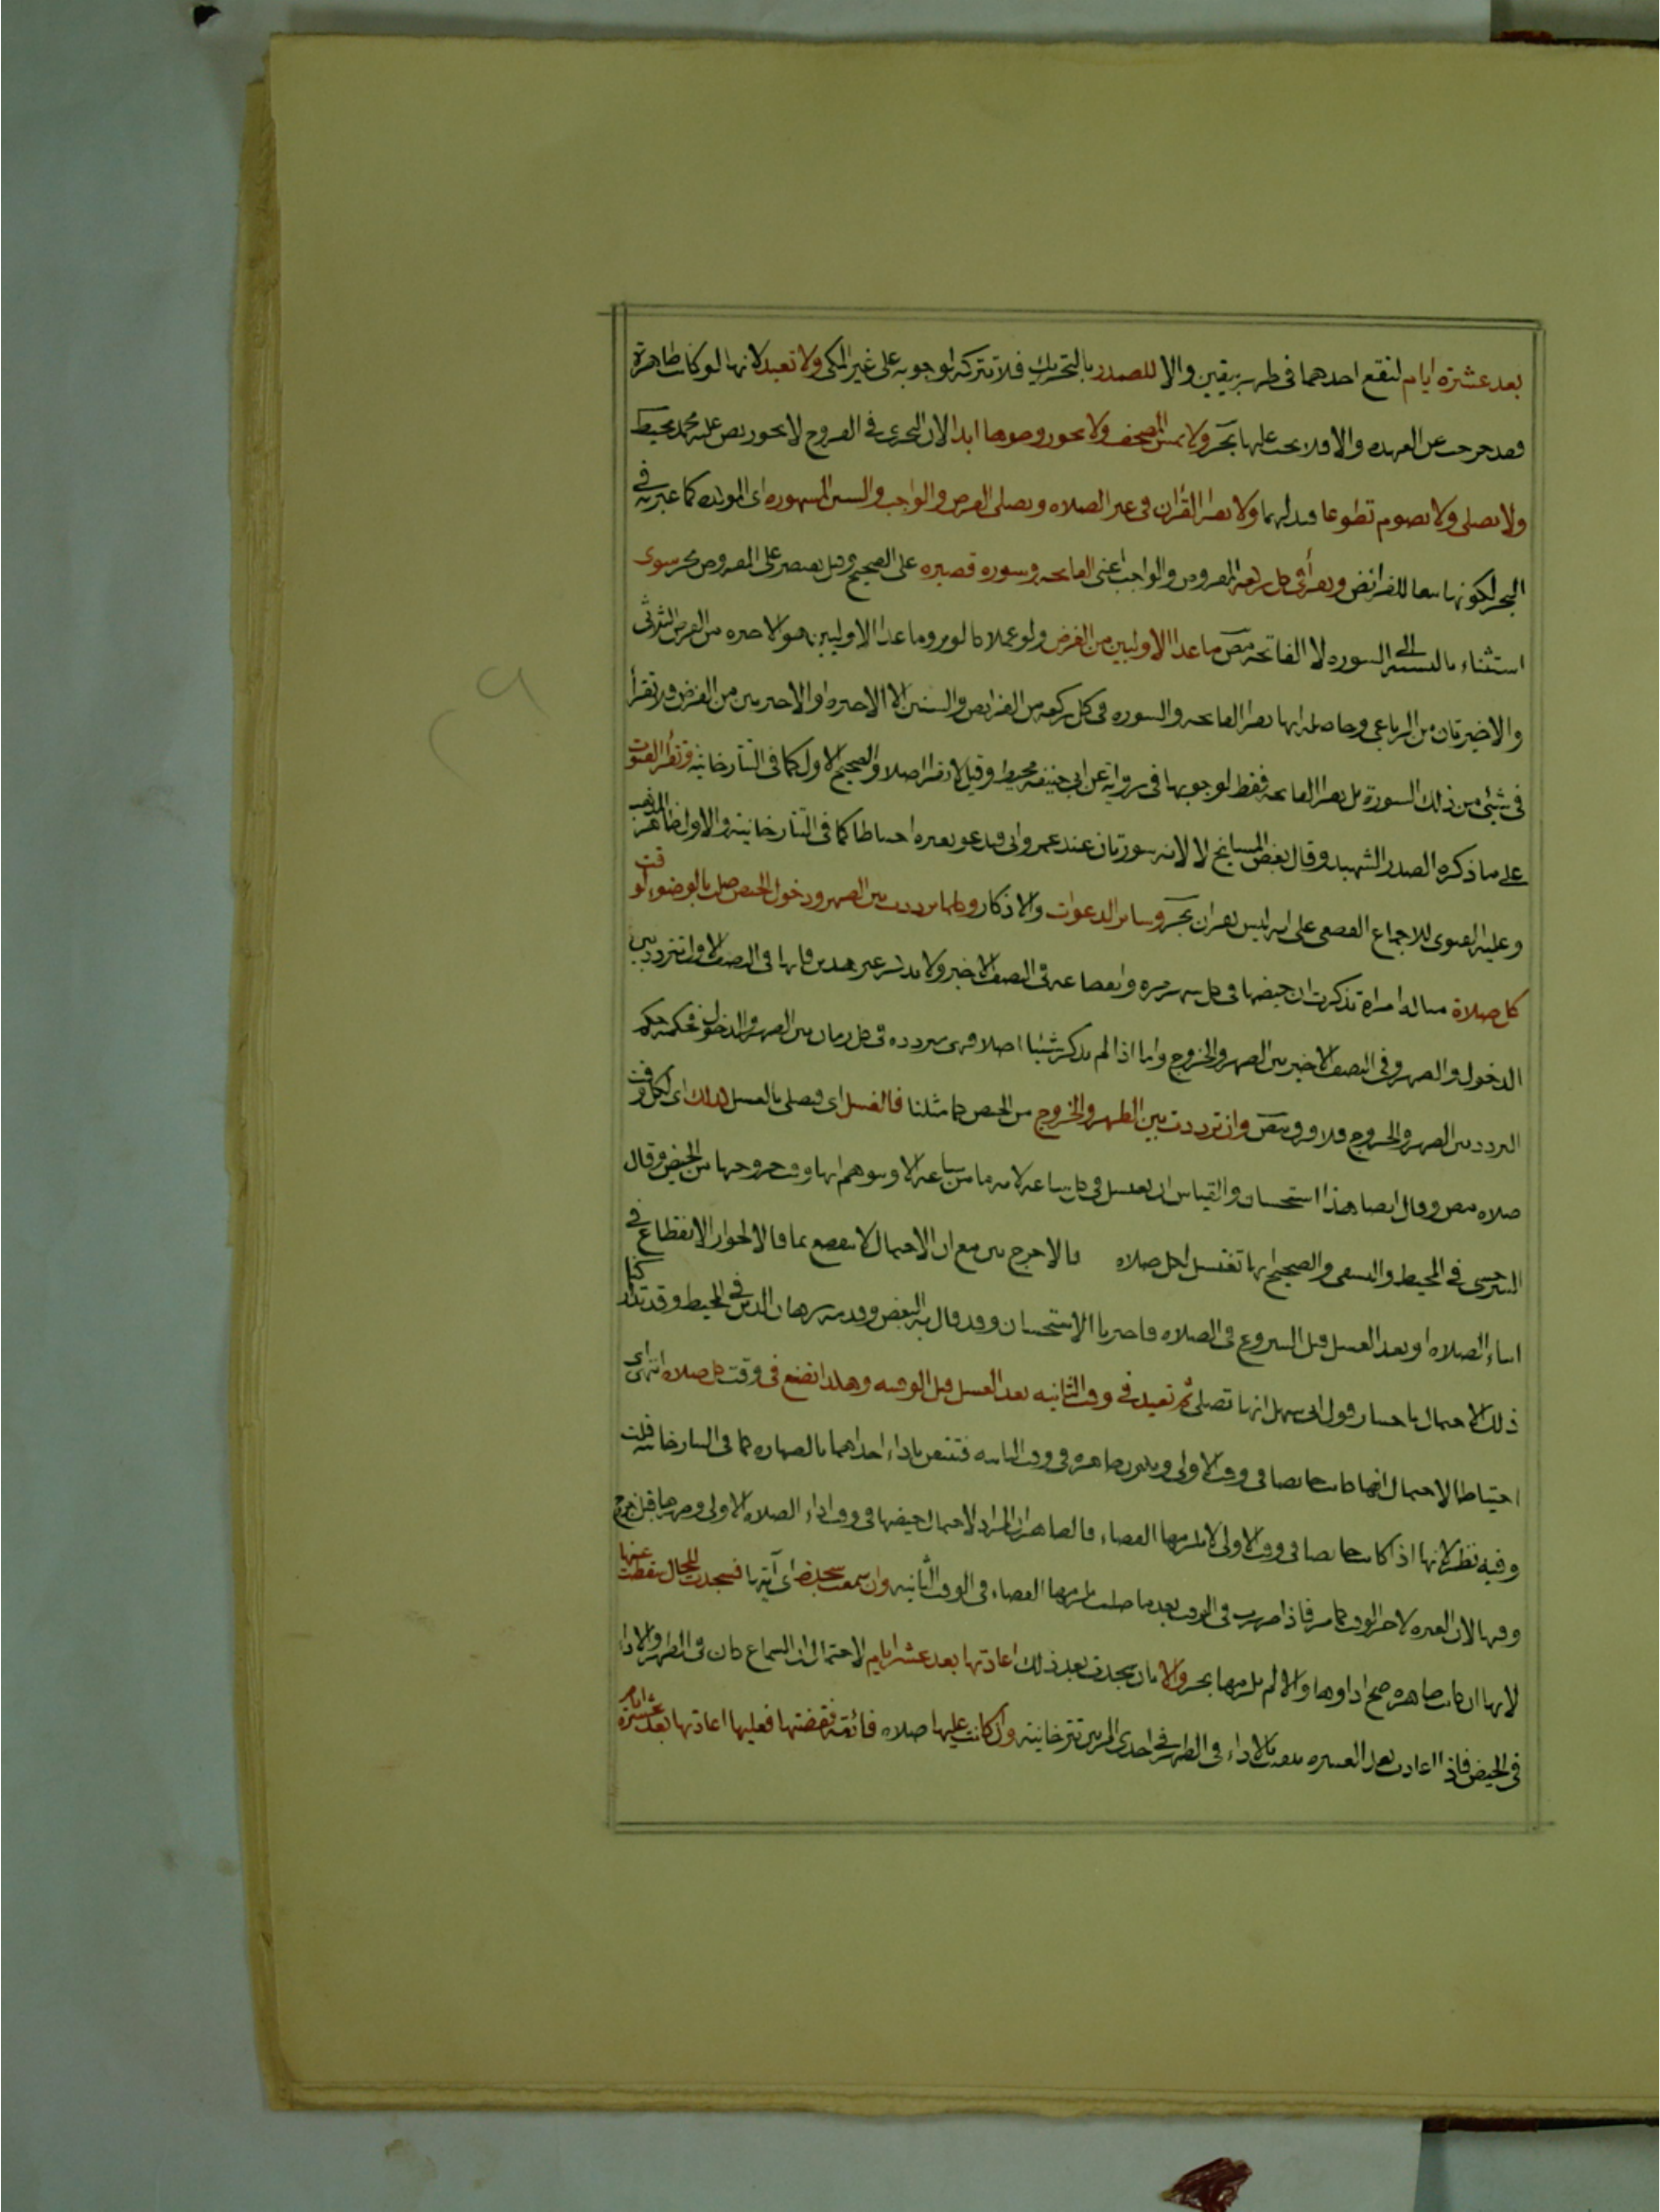 بعد عشرة ايام لتقع احدهما في طهر بيقين والا للصدر بالتحريك فلا تتركه لوجوبه على غير المكي ولا تعيد لانها لو كانت طاهرة
فقد خرجت عن العهدة والا فلا يجب عليها بحر ولا تمس المصحف ولا يجوز وطوها ابدا لان التحري في الفروج لا يجوز نص عليه محمد محيط
ولا تصلي ولا تصوم تطوعا قيد لهما ولا تقرا القران في غير الصلاه وتصلي الفرض والواجب والسنن المشهوره اي المؤكده كما عبر به في
البحر لكونها تبعا للفرائض وتقرأ في كل ركعه المفروض والواجب اعني الفاتحه وسوره قصيره على الصحيح وقيل تقتصر على المفروض بحر سوى
استثناء بالنسبة الى السوره لا الفاتحه مص ما عدا الاوليين من الفرض ولو عملا كالوتر وما عدا الاوليين هو الاخيره من الفرض الثلاثي
والاخيرتان من الرباعي وحاصله انها تقرا الفاتحه والسوره في كل ركعه من الفرايض والسنن الا الاخيره او الاخيرتين من الفرض فلا تقرأ
في شيئ من ذلك السورة بل تقرا الفاتحه فقط لوجوبها في رواية عن ابي حنيفه محيط وقيل لا تقرا اصلا والصحيح الاول كما في التتارخانيه وتقرأ القنوت
على ما ذكره الصدر الشهيد وقال بعض المشايخ لا لانه سورتان عند عمر وابي فتدعو بغيره احتياطا كما في التتارخانية والاول ظاهر المذهب
وعليه الفتوى للاجماع القطعي على انه ليس بقران بحر وسائر الدعوات والاذكار وكلما ترددت بين الطهر ودخول الحيض صلت بالوضوء لوقت
كل صلاة مثاله امراة تذكرت ان حيضها في كل شهر مره وانقطاعه في النصف الاخير ولا تذكر غير هذين فانها في النصف الاول تتردد بين
الدخول والطهر وفي النصف الاخير بين الطهر والخروج واما اذا لم تذكر شيئا اصلا فهي مترددة في كل زمان بين الطهر والدخول فحكمه حكم
التردد بين الطهر والخروج بلا فرق مص وان ترددت بين الطهر والخروج من الحيض كما مثلنا فالغسل اي فتصلي بالغسل كذلك اي لكل وقت
صلاه مص وقال ايضا هذا استحسان والقياس ان تغتسل في كل ساعه لانه ما من ساعه الا ويتوهم انها وقت خروجها من الحيض وقال
السرخسي في المحيط والنسفي والصحيح انها تغتسل لكل صلاه فالا حرج بين مع ان الاحتمال لا ينقطع بما قالا لجواز الانقطاع في
اثناء الصلاه او بعد الغسل قبل الشروع في الصلاه فاخترنا الاستحسان وقد قال به البعض وقدمه برهان الدين في المحيط وقد تداركنا
ذلك الاحتمال باختيار قول ابي سهل انها تصلي ثم تعيد في وقت الثانيه بعد الغسل قبل الوقتيه وهكذا تصنع في وقت كل صلاه انتهى اي
احتياطا لاحتمال انها كانت حائضا في وقت الاولى وتكون طاهره في وقت الثانيه فتتيقن باداء احداهما بالطهاره كما في التتارخانيه قلت
وفيه نظر لانها اذا كانت حائضا في وقت الاولى لا يلزمها القضاء فالظاهر ان المراد لاحتمال حيضها في وقت اداء الصلاه الاولى وطهرها قبل خروج
وقتها لان العبره لاخر الوقت كما مر فاذا طهرت في الوقت بعد ما صلت يلزمها القضاء في الوقت الثانيه وان سمعت سجدة اي آيتها فسجدت للحال سقطت عنها
لانها ان كانت طاهره صح اداوها والا لم يلزمها بحر والا بان سجدت بعد ذلك اعادتها بعد عشرة ايام لاحتمال ان السماع كان في الطهر والاداء
في الحيض فاذا اعادت بعد العشره تيقنت بالاداء في الطهر في احدى المرتين تترخانية وان كانت عليها صلاه فائتة فقضتها فعليها اعادتها بعد عشرة ايام